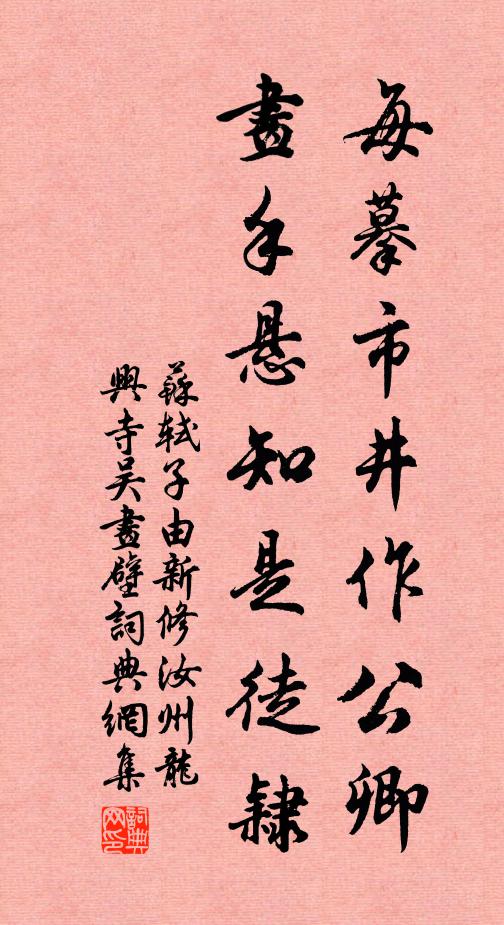 每摹市井作公卿
畫手懸知是徒隸
蘇軾子由新修汝州龍
興寺吴畫壁詞典網集
詞典网印